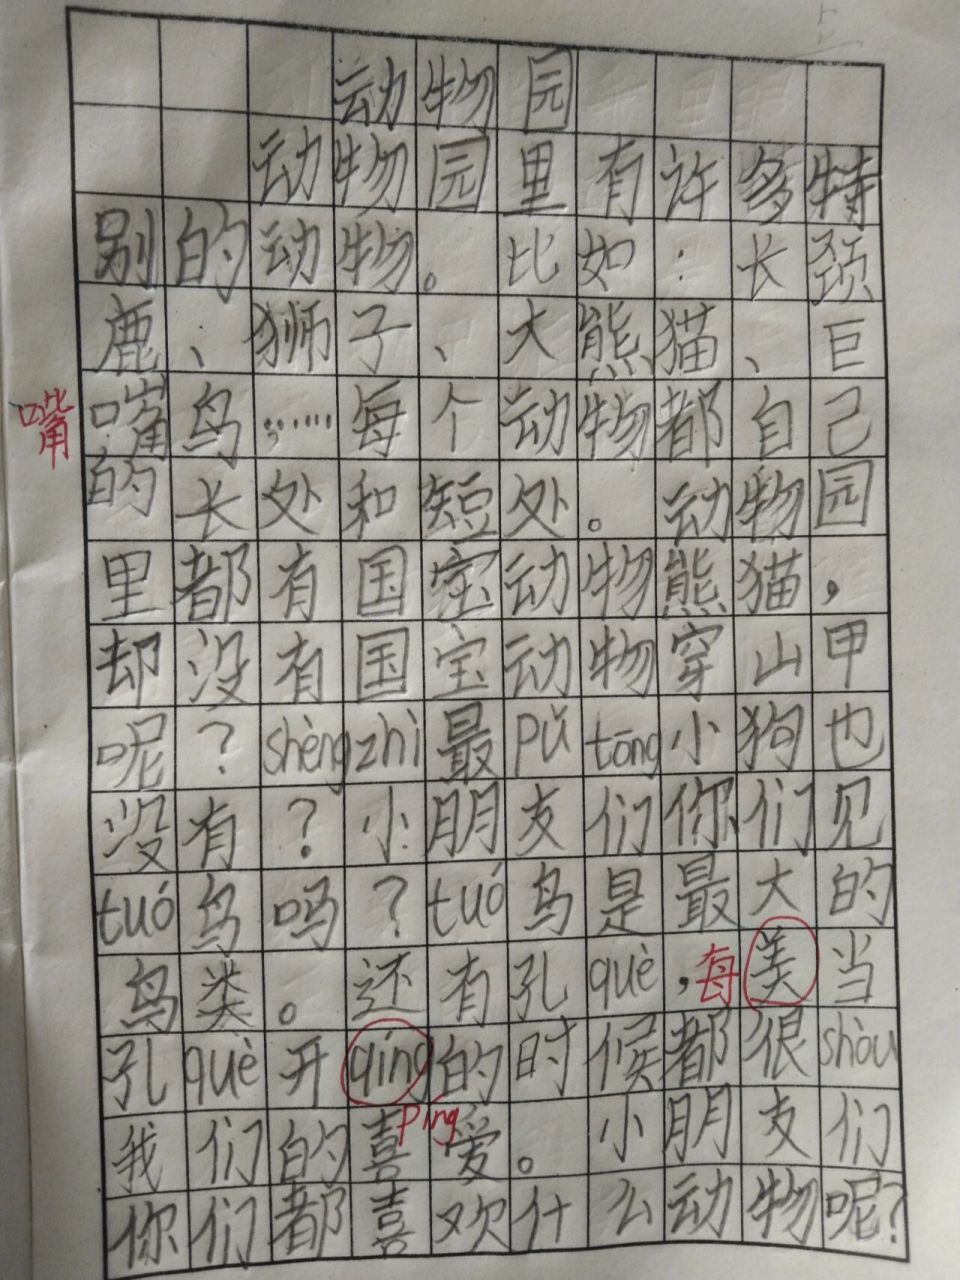 动物园
动物园里有许多特
别的动物。比如:长颈
鹿、狮子、大熊猫、巨
嘴 嘴鸟……每个动物都自己
的长处和短处。动物园
里都有国宝动物熊猫，
却没有国宝动物穿山甲
呢?shèngzhì最pǔtōng小狗也
没有?小朋友们你们见
tuó鸟吗?tuó鸟是最大的
鸟类。还有孔què,每美当
孔què开qíng的时候都很shòu
píng
我们的喜爱。小朋友们
你们都喜欢什么动物呢?